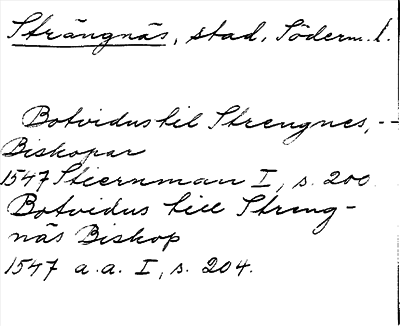 Strängnäs, stad, Söderm. l.
Botvidus til Strengnes, --
Biskopar
1547 Stiernman I, s. 200.
Botvidus till Streng-
näs Biskop
1547 a.a. I, s. 204.